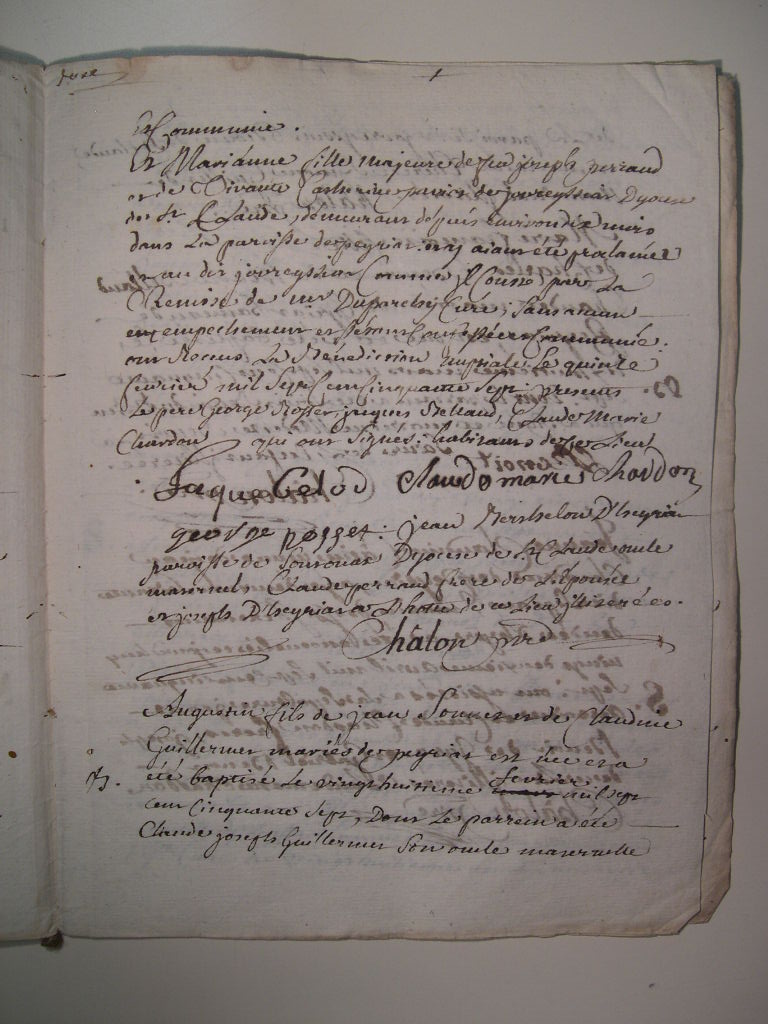 et Communié.
Et Marianne fille majeure de feu joseph perraud
et de vivante Catherine de joveyssiat Dyocese
de St. Claude, demeurant depuis environ dix mois
dans La paroisse de peyriat aiant été proclamés
et au dit joveyssiat Comme il Conste par La
Remise de mr Duparchy Curé, Sans aucun
empechement et Communié.
ont Recens La Bénédiction nuptiale Le quinze
fevrier mil Sept Cent Cinquante Sept: presents
Le pere George Rosset, jaques Claude Marie
Chardon qui ont Signés: habitants de ce Lieu
Jaque Claude marie Chardon
george rosset: jean Berthelon D'heyria
paroisse de Dyocese de St Claude oncle
maternel, Claude perraud frere de L'épouse
et joseph D'heyriat de ce Lieu illiteré
Châlon
Augustin fils de jean et de Claudine
Guillermet mariés de peyriat est née et a
B. été baptisé Le vingt huitieme fevrier mil sept
cent Cinquante Sept, Dont Le parrein a été
Claude joseph Guillermet Son oncle maternelle